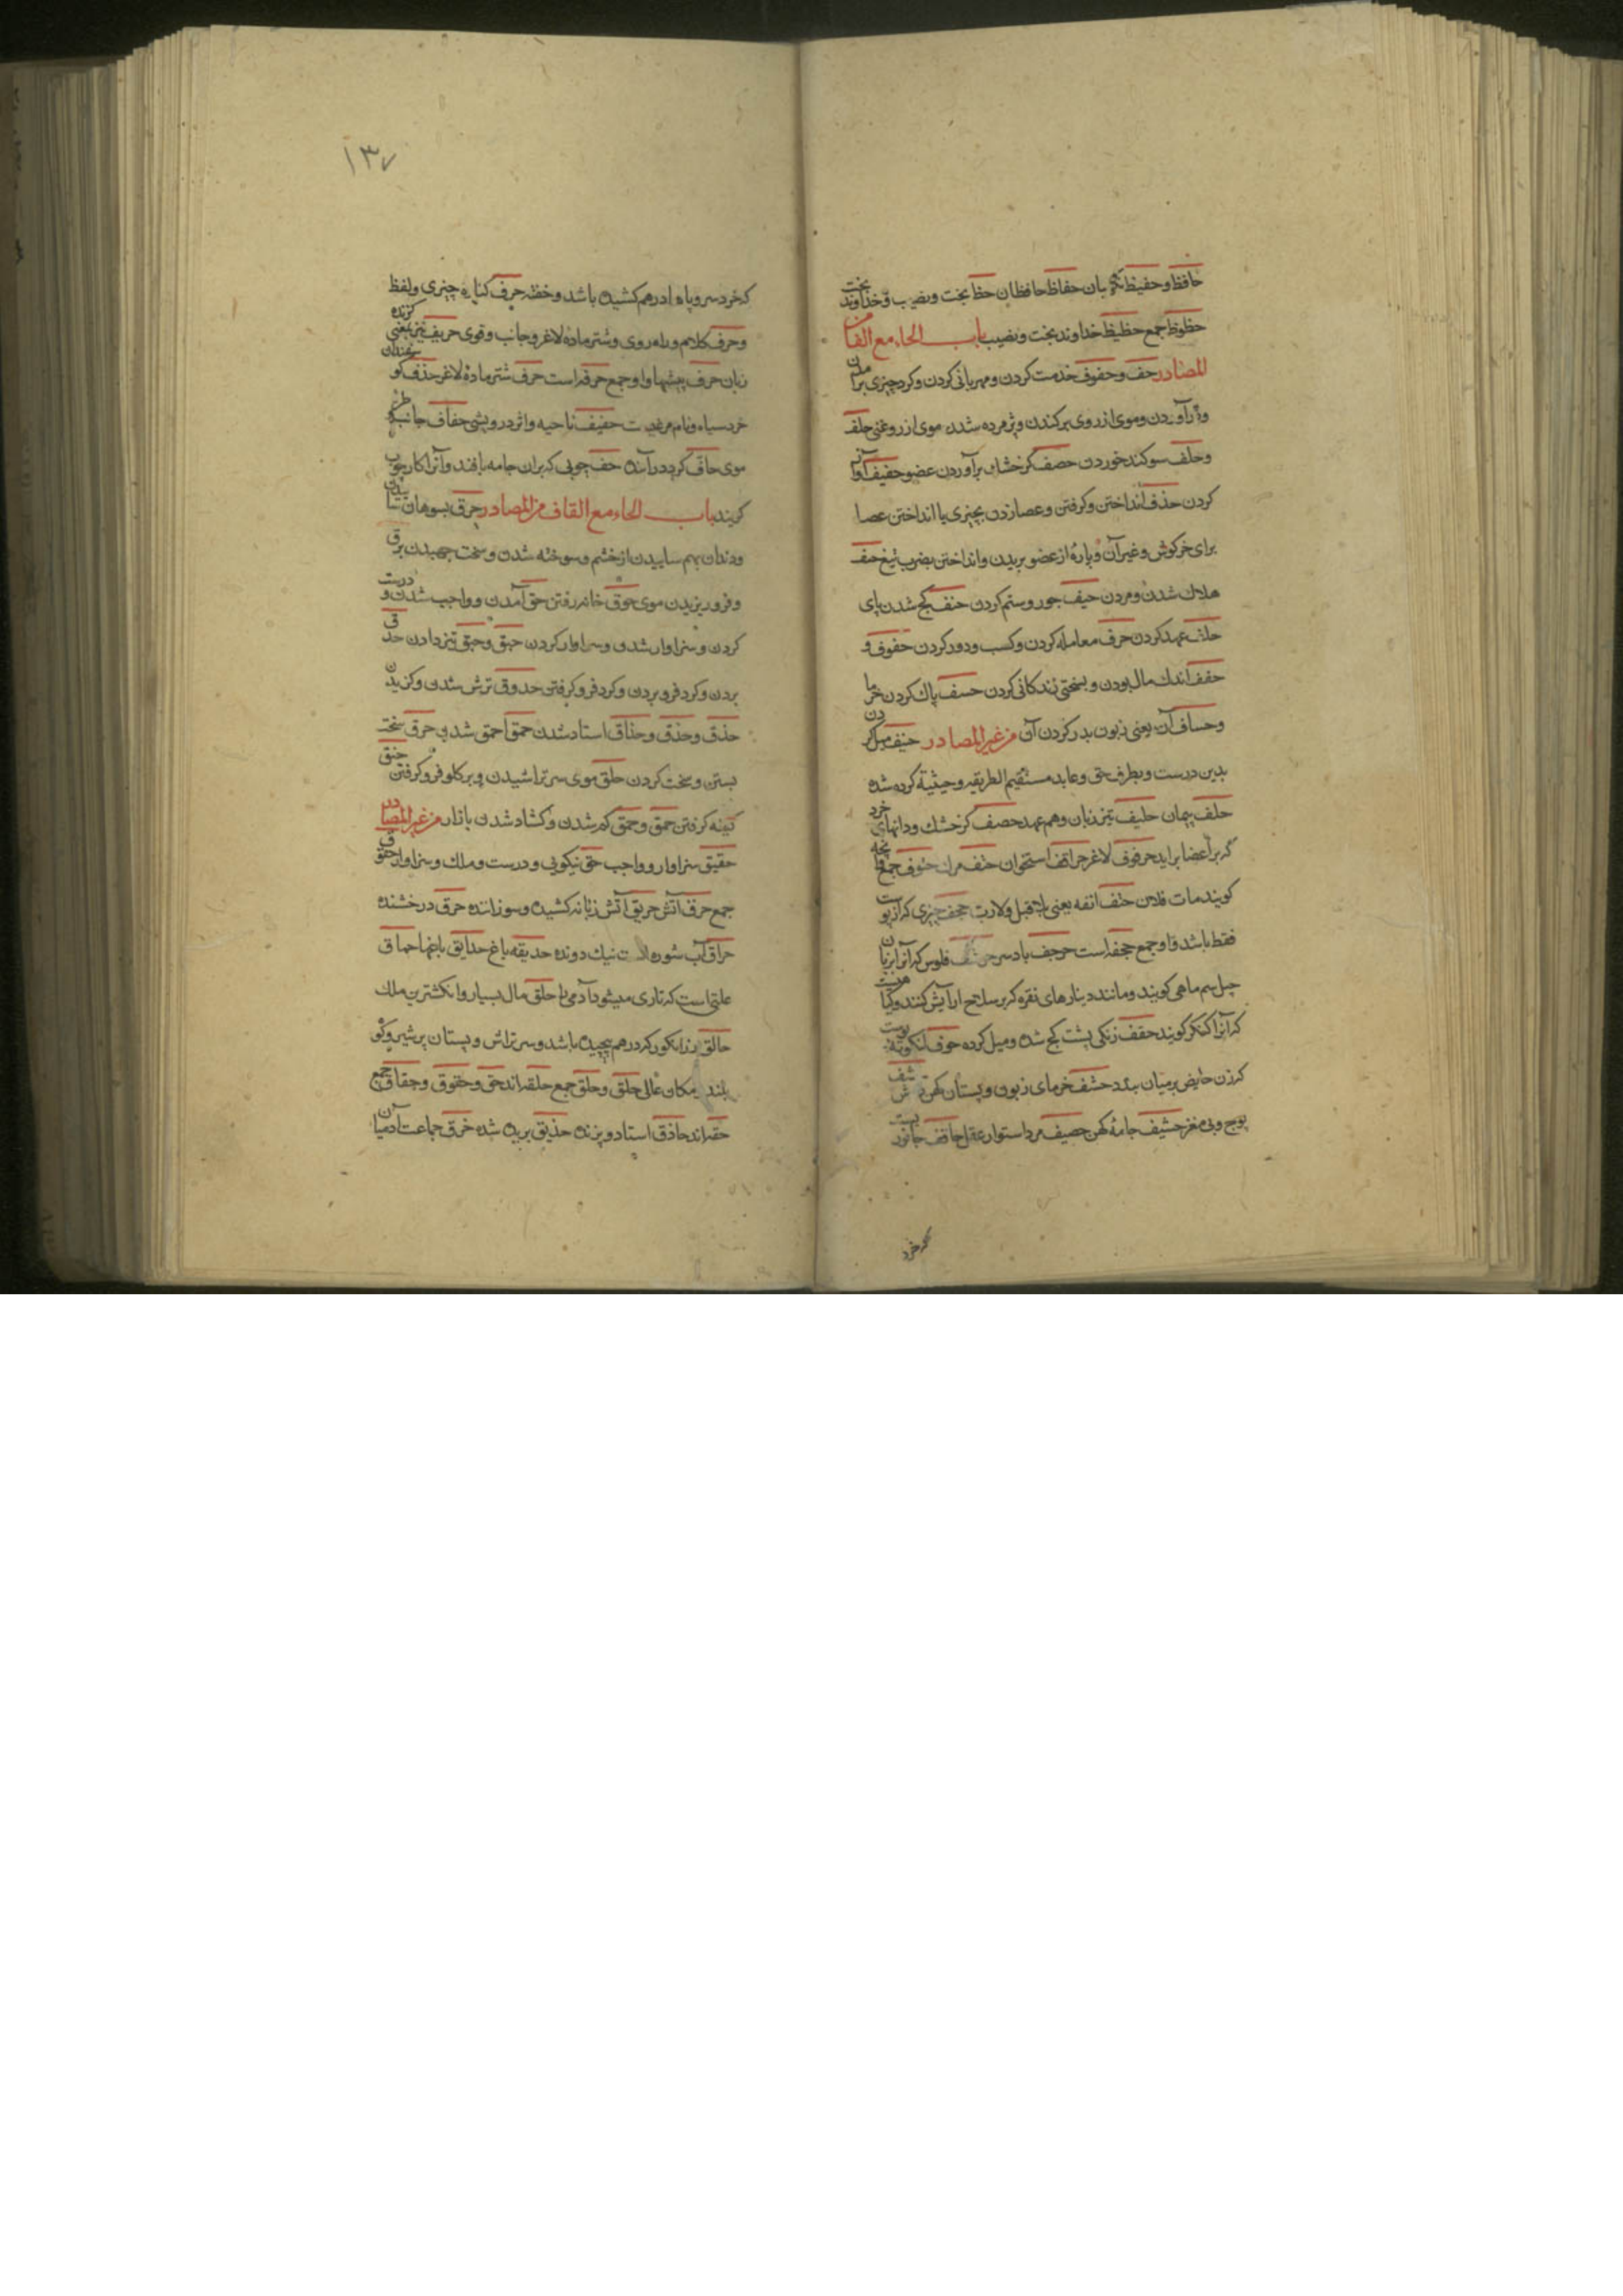 حافظ و حفیظ نگهبان حفاظ حافظان حظ بخت و نصیب و خداوند بخت
حظوظ جمع حظیظ خداوند بخت و نصیب باب الحاء مع الفاء من
المصادر حف و حفوف خدمت کردن و مهربانی کردن و کرد چیزی برآمدن
و آوردن و موی از روی برکندن و پژمرده شدن موی از روغنی حلف
و حلف سوکند خوردن حصف کر خشک برآوردن عضو حفیف آواز
کردن حذف انداختن و کرفتن و عصا زدن بچیزی یا انداختن عصا
برای خرکوش و غیر آن و پارهٔ از عضو بریدن و انداختن بضرب تیغ حتف
هلاک شدن و مردن حیف جور و ستم کردن حنف کج شدن پای
حلف عهد کردن حرف معامله کردن و کسب و دور کردن حفوف و
حفف اندک مال بودن و بسختی زندکانی کردن حسف پاک کردن خرما
و حساف آن یعنی زبون بدر کردن آن من غیر المصادر حنیف میل کردن
بدین درست و بطرف حق و عابد مستقیم الطریقه و حیثیة کرده شده
حلف پیمان حلیف تیز زبان و هم عهد حصف کر خشک و دانهای خرد
که بر اعضا براید حرقوف لاغر حراقف استخوان حتف مرک حتوف جمع
کویند مات فلان حتف انفه یعنی بلا قتل و لا ضرب حجف چیزی که از پوست
فقط باشد و او جمع حجفه است حرجف باد سرد فلوس که آنرا بزبان
چیل سم ماهی کویند و مانند دینارهای نقره که بر سلاح ارایش کنند و کیا
که آنرا کنکر کویند حقف زنکی پشت کج شده و میل کرده حوف لنکوته پوست
کرزن حایض بر میان بندد حشف خرمای زبون و پستان کهن
پوچ و بی مغز حشیف جامهٔ کهن حصیف مرد استوار عقل حاقف جانور
که خرد
۱۳۷
که خرد سر و پا را درهم کشیده باشد و خفته حرف کنارهٔ چیزی و لفظ
و حرف کلام و راه روی و شتر مادهٔ لاغر و جانب و قوی حریف تیز یعنی کزنده
زبان حرف پیشها و او جمع حرفه است حرف شتر مادهٔ لاغر حذف کوسفندان
خرد سیاه و نام مرغیست حفیف ناحیه و اثر درویشی حفاف جانب
موی حاف کردد رآینده حف چوبی که بران جامه بافند و آنرا کار چوب
کویند باب الحاء مع القاف من المصادر حرق بسوهان سائیدن
و دندان بهم ساییدن از خشم و سوخته شدن و سخت جهیدن برق
و فرو ریزیدن موی حوق خانه رفتن حق آمدن و واجب شدن و درست
کردن و سزاوار شدن و سزاوار کردن حبق و حبق تیز دادن حذق
بردن و کرد فرو بردن و کرد فرو کرفتن حذوق ترش شدن و کزیدن
حذق و حذق و حذاق استاد شدن حمق احمق شدن حرق سخت
بستن و سخت کردن حلق موی سر تراشیدن و بر کلو فرو کرفتن حنق
کینه کرفتن حمق و حمق کم شدن و کشاد شدن بازار من غیر المصادر
حقیق سزاوار و واجب حق نیکویی و درست و ملک و سزاوار حقوق
جمع حرق آتش حریق آتش زبانه کشیده و سوزانده حرق درخشنده
حراق آب شوره نیک دونده حدیقه باغ حدایق باغها حماق
علتی است که تاری میشود آدمی را حلق مال بسیار و انکشترین ملک
حالق رز انکور که درهم پیچیده باشد و سر تراش و پستان پر شیر و کوه
بلند مکان عالی حلق و حلق جمع حلقه اند حق و حقوق و حقاق جمع
حقه اند حاذق استاد و برنده حذیق بریده شده حزق جماعت آدمیان